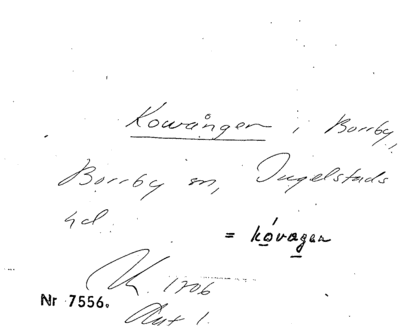 Kowången i Borrby,
Borrby sn, Ingelstads
hd
= kóvaŋen
K. 1706
Nr 7556.
Akt 1.